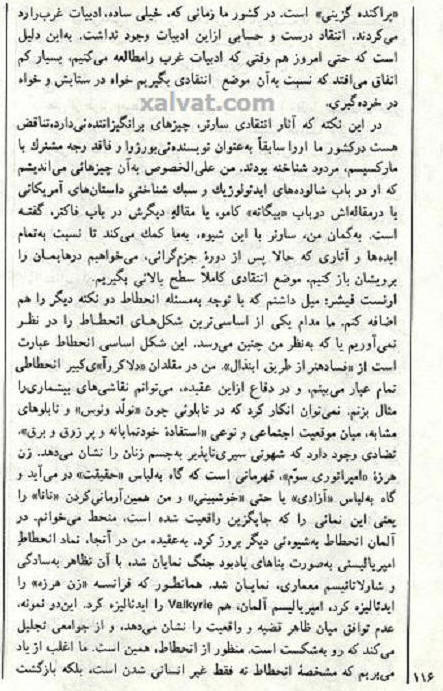 «پراکنده گزینی» است. در کشور ما زمانی که، خیلی ساده، ادبیات غرب رارد
می‌کردند. انتقاد درست و حسابی ازاین ادبیات وجود نداشت. به‌این دلیل
است که حتی امروز هم وقتی که ادبیات غرب رامطالعه می‌کنیم، بسیار کم
اتفاق می‌افتد که نسبت به‌آن موضع انتقادی بگیریم خواه در ستایش و خواه
در خرده‌گیری.
xalvat.com
در این نکته که آثار انتقادی سارتر، چیزهای برانگیزاننده‌ئی‌دارد، تناقض
هست درکشور ما اورا سابقاً به‌عنوان نویسنده‌ئی‌بورژوا و فاقد وجه مشترك با
مارکسیسم، مردود شناخته بودند. من علی‌الخصوص به‌آن چیزهائی می‌اندیشم
که او در باب شالوده‌های ایدئولوژیك و سبك شناختیِ داستان‌های آمریکائی
یا درمقاله‌اش درباب «بیگانه» کامو، یا مقالهٔ دیگرش در باب فاکنر، گفتـه
است. به‌گمان من، سارتر با این شیوه، به‌ما کمك می‌کند تا نسبت به‌تمام
ایده‌ها و آثاری که حالا پس از دورهٔ جزم‌گرائی، می‌خواهیم درهایمـان را
برویشان باز کنیم، موضع انتقادی کاملاً سطح بالائی بگیریم.
ارنست فیشر: میل داشتم که با توجه به‌مسئله انحطاط دو نکته دیگر را هم
اضافه کنم. ما مدام یکی از اساسی‌ترین شکل‌هـای انحطـاط را در نظـر
نمی‌آوریم یا که به‌نظر من چنین می‌رسد. این شکل اساسی انحطاط عبارت
است از «فسادهنر از طریق ابتذال». من در مقلدان «دلاکرواَ»ی‌کبیر انحطاطی
تمام عیار می‌بینم، و در دفاع ازاین عقیده، می‌توانم نقاشی‌های بیشمـاری‌را
مثال بزنم. نمی‌توان انکار کرد که در تابلوئی چون «تولّد ونوس» و تابلوهای
مشابه، میان موقعیت اجتماعی و نوعی «استفادهٔ خودنمایانه و پر زوق و برق»،
تضادی وجود دارد که شهوتی سیری‌ناپذیر به‌جسم زنان را نشان می‌دهد. زن
هرزهٔ «امپراتوری سوّم»، قهرمانی است که گاه به‌لباس «حقیقت» در می‌آید و
گاه به‌لباس «آزادی» یا حتی «خوشبینی» و من همین‌آرمانی‌کردنِ «نانا» را
یعنی این نمائی را که جایگزین واقعیت شده است، منحط می‌خوانم. در
آلمان انحطاط به‌شیوه‌ئی دیگر بروز کرد. به‌عقیده من در آنجا، نماد انحطاطِ
امپریالیستی به‌صورت بناهای یادبود جنگ نمایان شد، با آن تظاهر به‌سادگی
و شارلاتانیسم معماری، نمایـان شد. همانطـور که فرانسـه «زن هرزه» را
ایدئالیزه کرد، امپریالیسم آلمان، هم Valkyrie را ایدئالیزه کرد. این‌دو نمونه،
عدم توافق میان ظاهر قضیه و واقعیت را نشان می‌دهد، و از جوامعی تجلیل
می‌کند که رو به‌شکست است. منظور از انحطاط، همین است. ما اغلب از یاد
می‌بریم که مشخصهٔ انحطاط نه فقط غیر انسـانی شدن است، بلکه بازگشت
۱۱۶